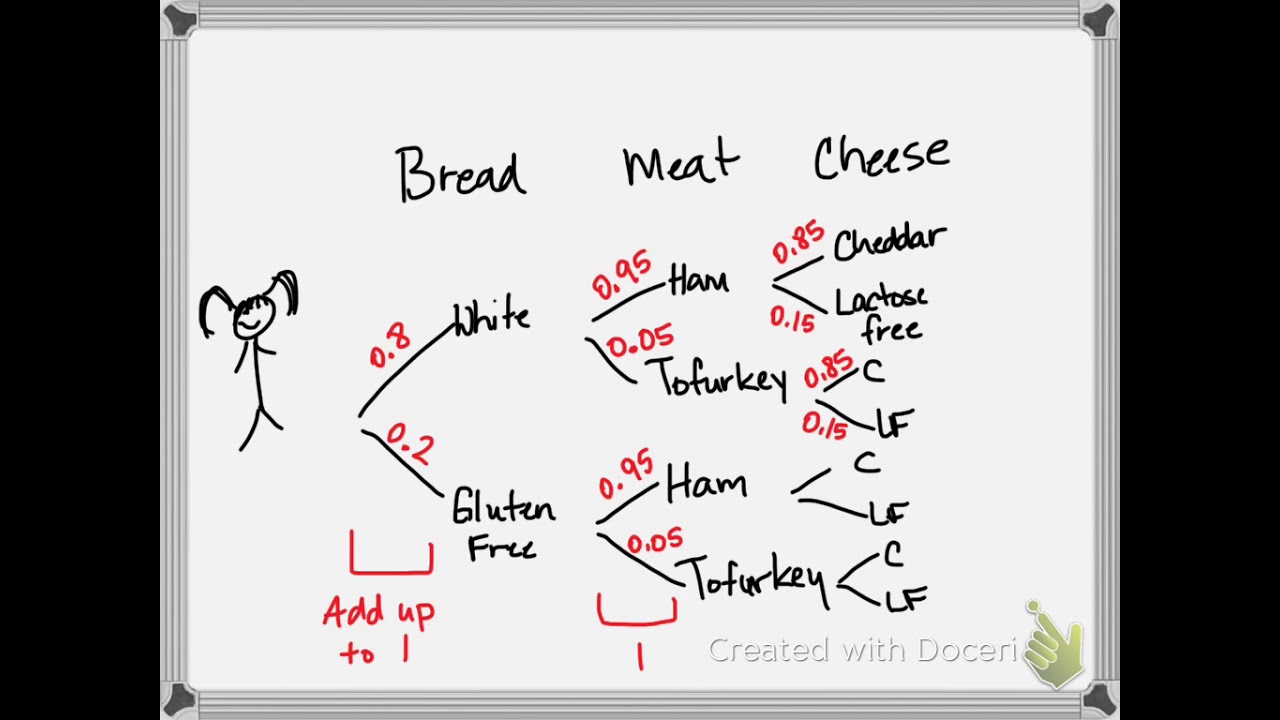 Bread Meat Cheese
0.85 Cheddar
0.95 Ham
0.15 Lactose
free
0.8 White
0.05
Tofurkey 0.85 C
0.15 LF
0.2
0.95 Ham C
LF
Gluten
Free
0.05
Tofurkey C
LF
Add up
to 1
1
Created with Doceri